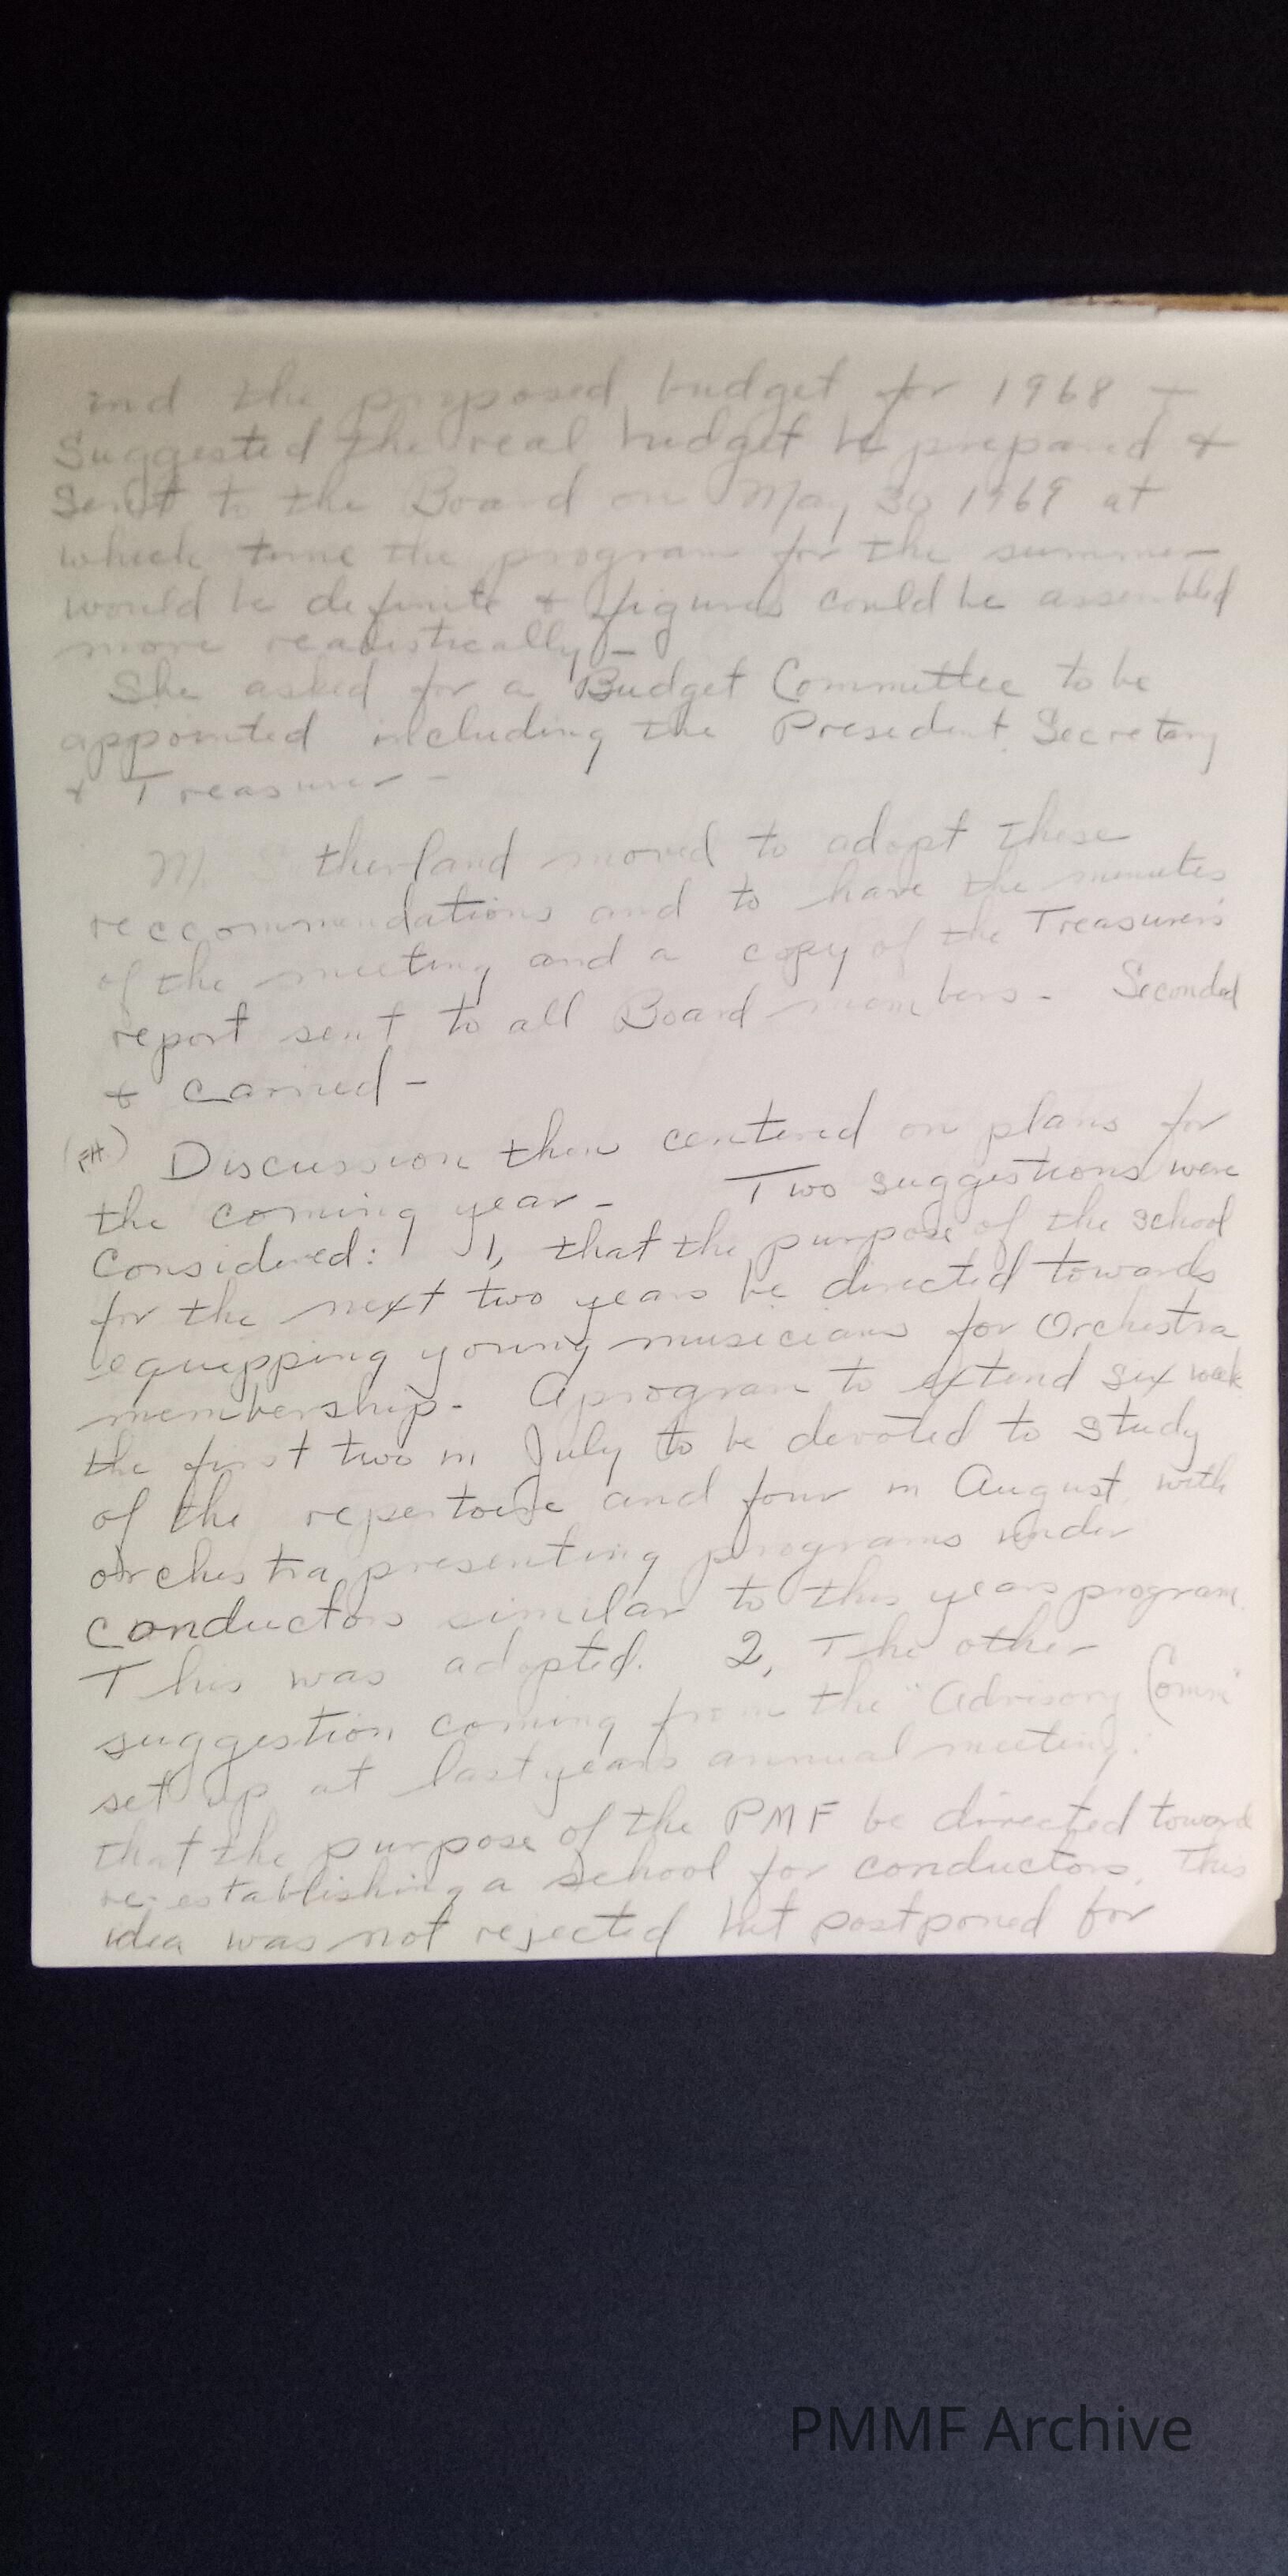 ind the proposed budget for 1968 +
Suggested the real budget be prepared &
sent to the Board on May 30 1969 at
which time the program for the summer
would be definite & figures could be assembled
more realistically -
She asked for a Budget Committee to be
appointed including the President, Secretary
& Treasurer -
therland moved to adopt these
reccommendations and to have the minutes
of the meeting and a copy of the Treasurer's
report sent to all Board members - Seconded
& carried -
(FH.) Discussion then centered on plans for
the coming year - Two suggestions were
Considered: 1, that the purpose of the school
for the next two years be directed towards
equipping young musicians for Orchestra
membership - A program to extend six week
the first two in July to be devoted to study
of the repertoire and four in August with
orchestra presenting programs under
conductors similar to this years program.
This was adopted. 2, The other
suggestion coming from the "Advisory Comm"
set up at last years annual meeting:
that the purpose of the PMF be directed toward
re-establishing a school for conductors. This
idea was not rejected but postponed for
PMMF Archive